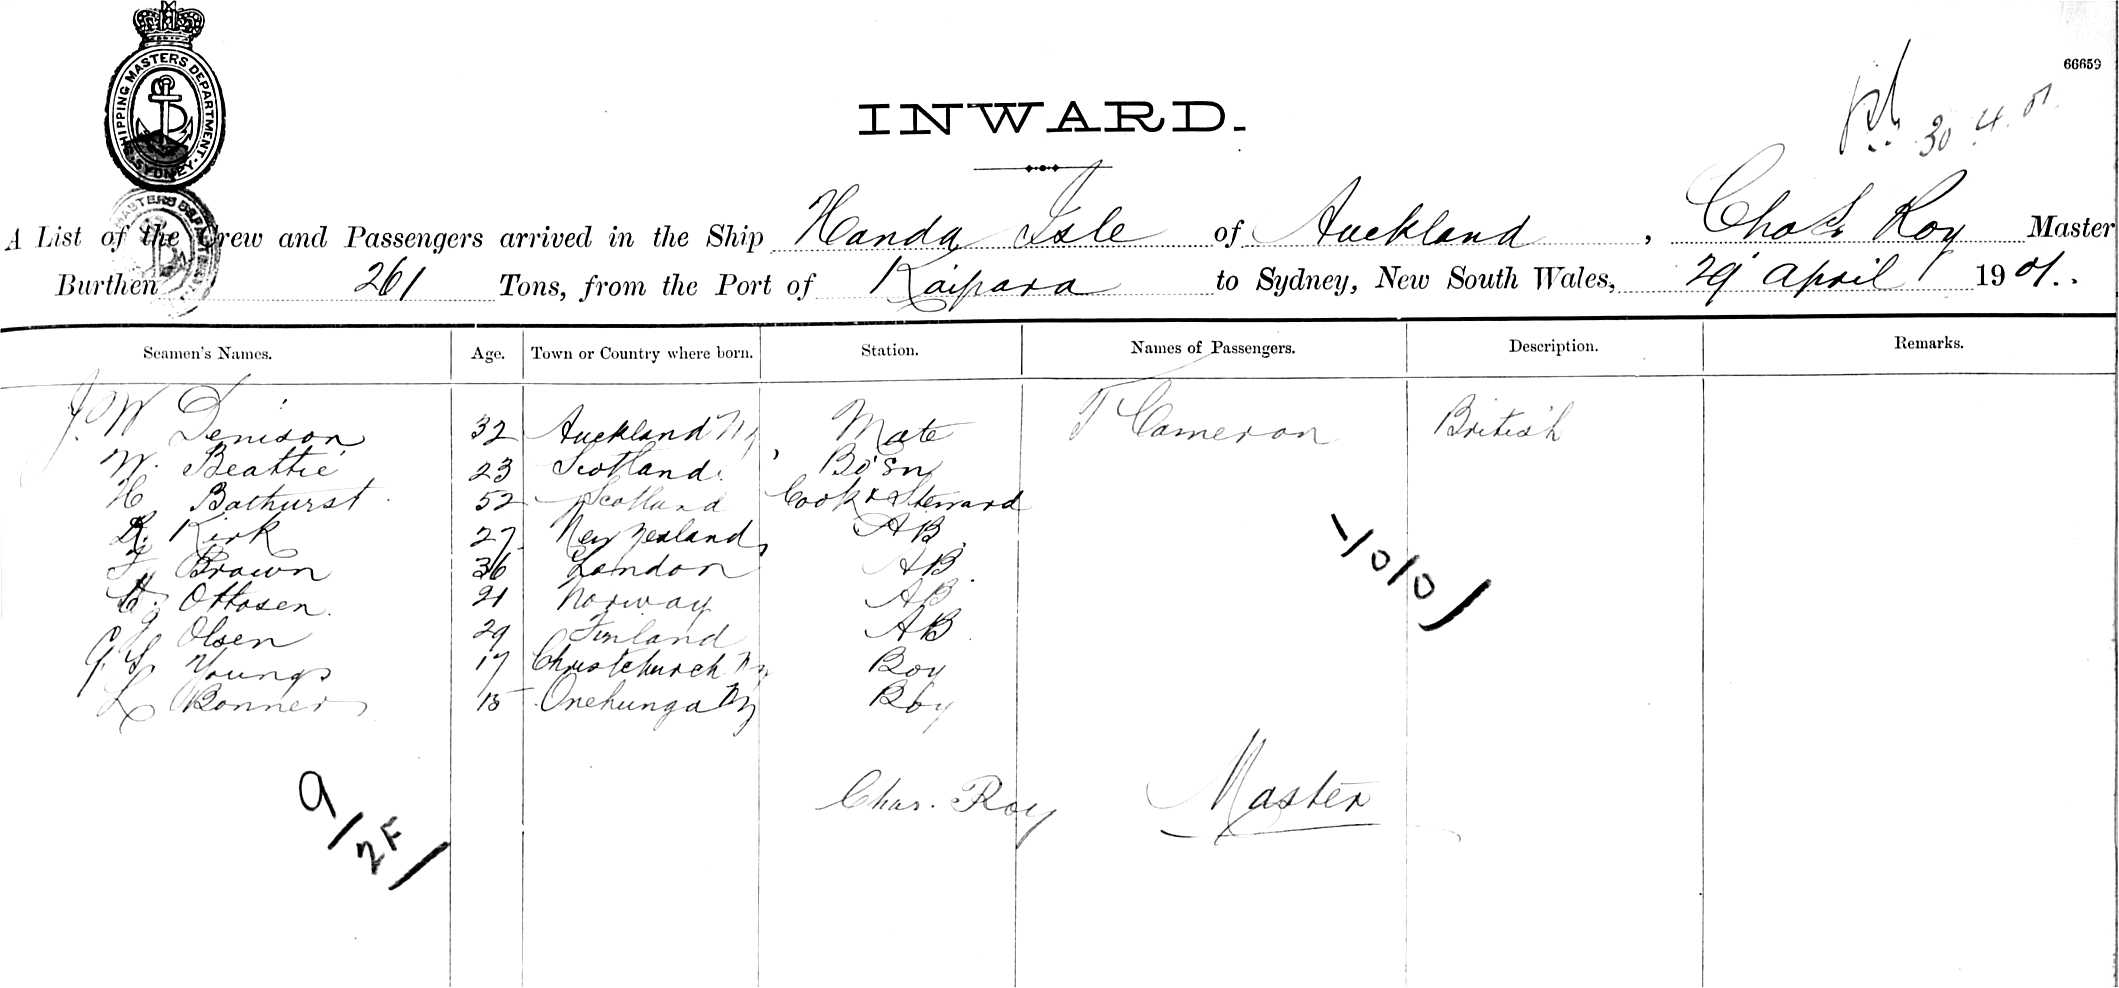 SHIPPING MASTERS DEPARTMENT · SYDNEY
66659
30 4 01
INWARD.
A List of the Crew and Passengers arrived in the Ship Handa Isle of Auckland, Chas. Roy Master
Burthen 261 Tons, from the Port of Kaipara to Sydney, New South Wales, 29 April 1901.
Seamen's Names. Age. Town or Country where born. Station. Names of Passengers. Description. Remarks.
J. W Denison 32 Auckland NZ Mate T Cameron British
W. Beattie 23 Scotland Bo'sn
H Bathurst 52 Scotland Cook & Steward
R. Kirk 27 New Zealand AB
Brown 36 London AB
Ottosen. 21 Norway AB
Olsen 29 Finland AB
Youngs 17 Christchurch NZ Boy
L Bonner 15 Onehunga NZ Boy
1/0/0/
Chas. Roy Master
9/2F/